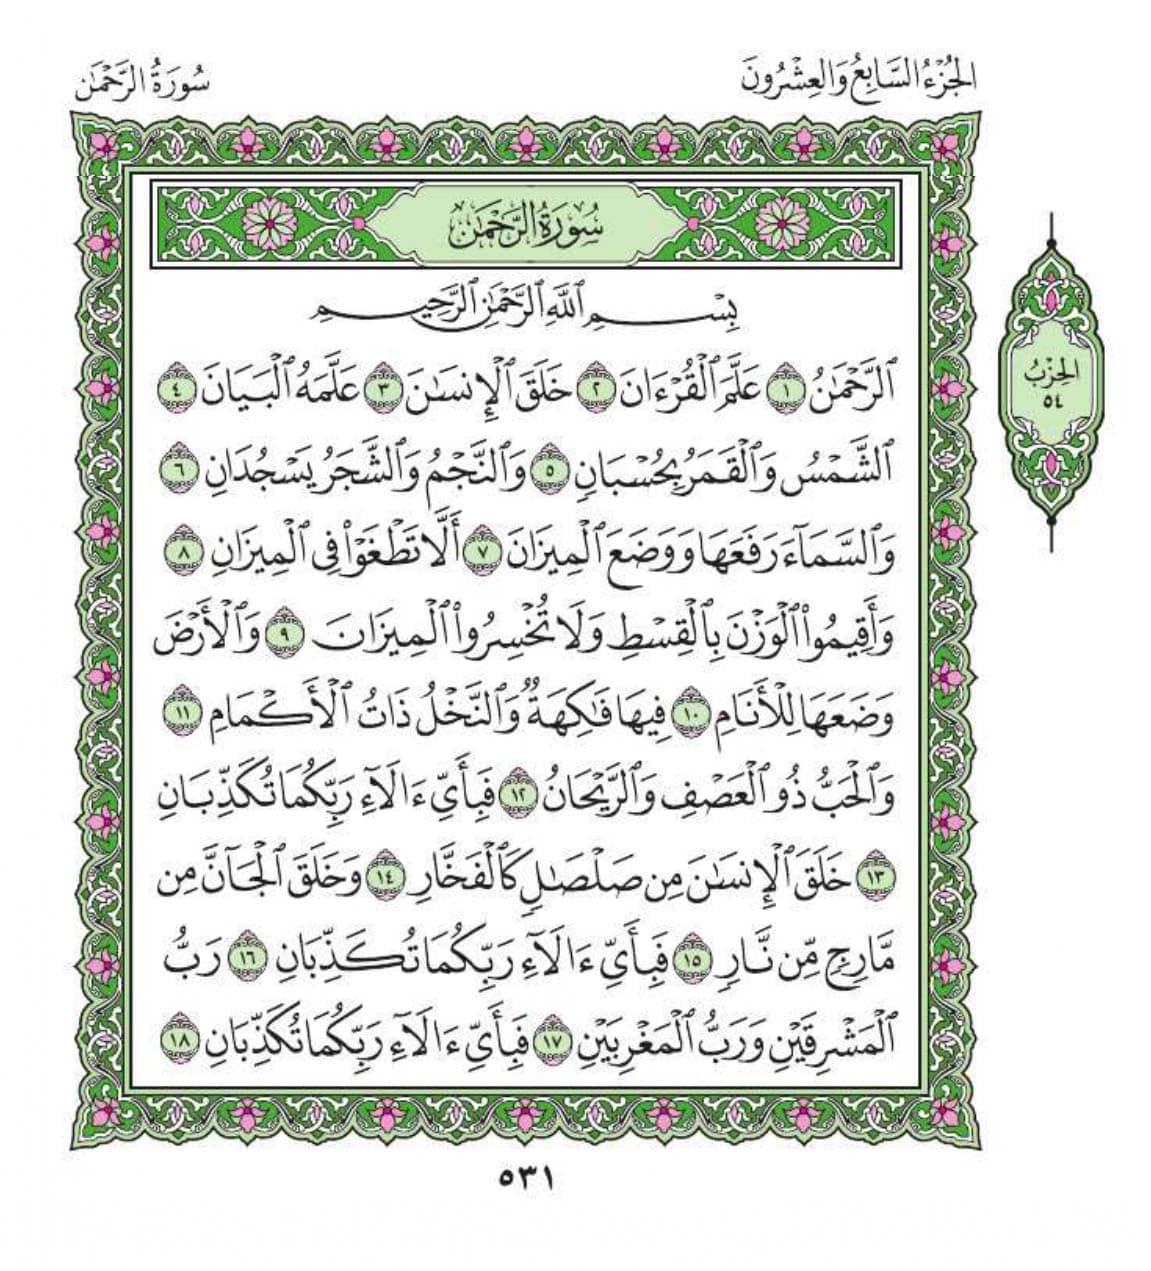 الجُزْءُ السَّابِعُ وَالعِشْرُونَ
سُورَةُ الرَّحْمَٰن
سُورَةُ الرَّحْمَٰن
بِسْمِ ٱللَّهِ ٱلرَّحْمَٰنِ ٱلرَّحِيمِ
ٱلرَّحْمَٰنُ ١ عَلَّمَ ٱلْقُرْءَانَ ٢ خَلَقَ ٱلْإِنسَٰنَ ٣ عَلَّمَهُ ٱلْبَيَانَ ٤
ٱلشَّمْسُ وَٱلْقَمَرُ بِحُسْبَانٍ ٥ وَٱلنَّجْمُ وَٱلشَّجَرُ يَسْجُدَانِ ٦
وَٱلسَّمَآءَ رَفَعَهَا وَوَضَعَ ٱلْمِيزَانَ ٧ أَلَّا تَطْغَوْا۟ فِى ٱلْمِيزَانِ ٨
وَأَقِيمُوا۟ ٱلْوَزْنَ بِٱلْقِسْطِ وَلَا تُخْسِرُوا۟ ٱلْمِيزَانَ ٩ وَٱلْأَرْضَ
وَضَعَهَا لِلْأَنَامِ ١٠ فِيهَا فَٰكِهَةٌ وَٱلنَّخْلُ ذَاتُ ٱلْأَكْمَامِ ١١
وَٱلْحَبُّ ذُو ٱلْعَصْفِ وَٱلرَّيْحَانُ ١٢ فَبِأَىِّ ءَالَآءِ رَبِّكُمَا تُكَذِّبَانِ
١٣ خَلَقَ ٱلْإِنسَٰنَ مِن صَلْصَٰلٍ كَٱلْفَخَّارِ ١٤ وَخَلَقَ ٱلْجَآنَّ مِن
مَّارِجٍ مِّن نَّارٍ ١٥ فَبِأَىِّ ءَالَآءِ رَبِّكُمَا تُكَذِّبَانِ ١٦ رَبُّ
ٱلْمَشْرِقَيْنِ وَرَبُّ ٱلْمَغْرِبَيْنِ ١٧ فَبِأَىِّ ءَالَآءِ رَبِّكُمَا تُكَذِّبَانِ ١٨
الحِزْبُ
٥٤
٥٣١